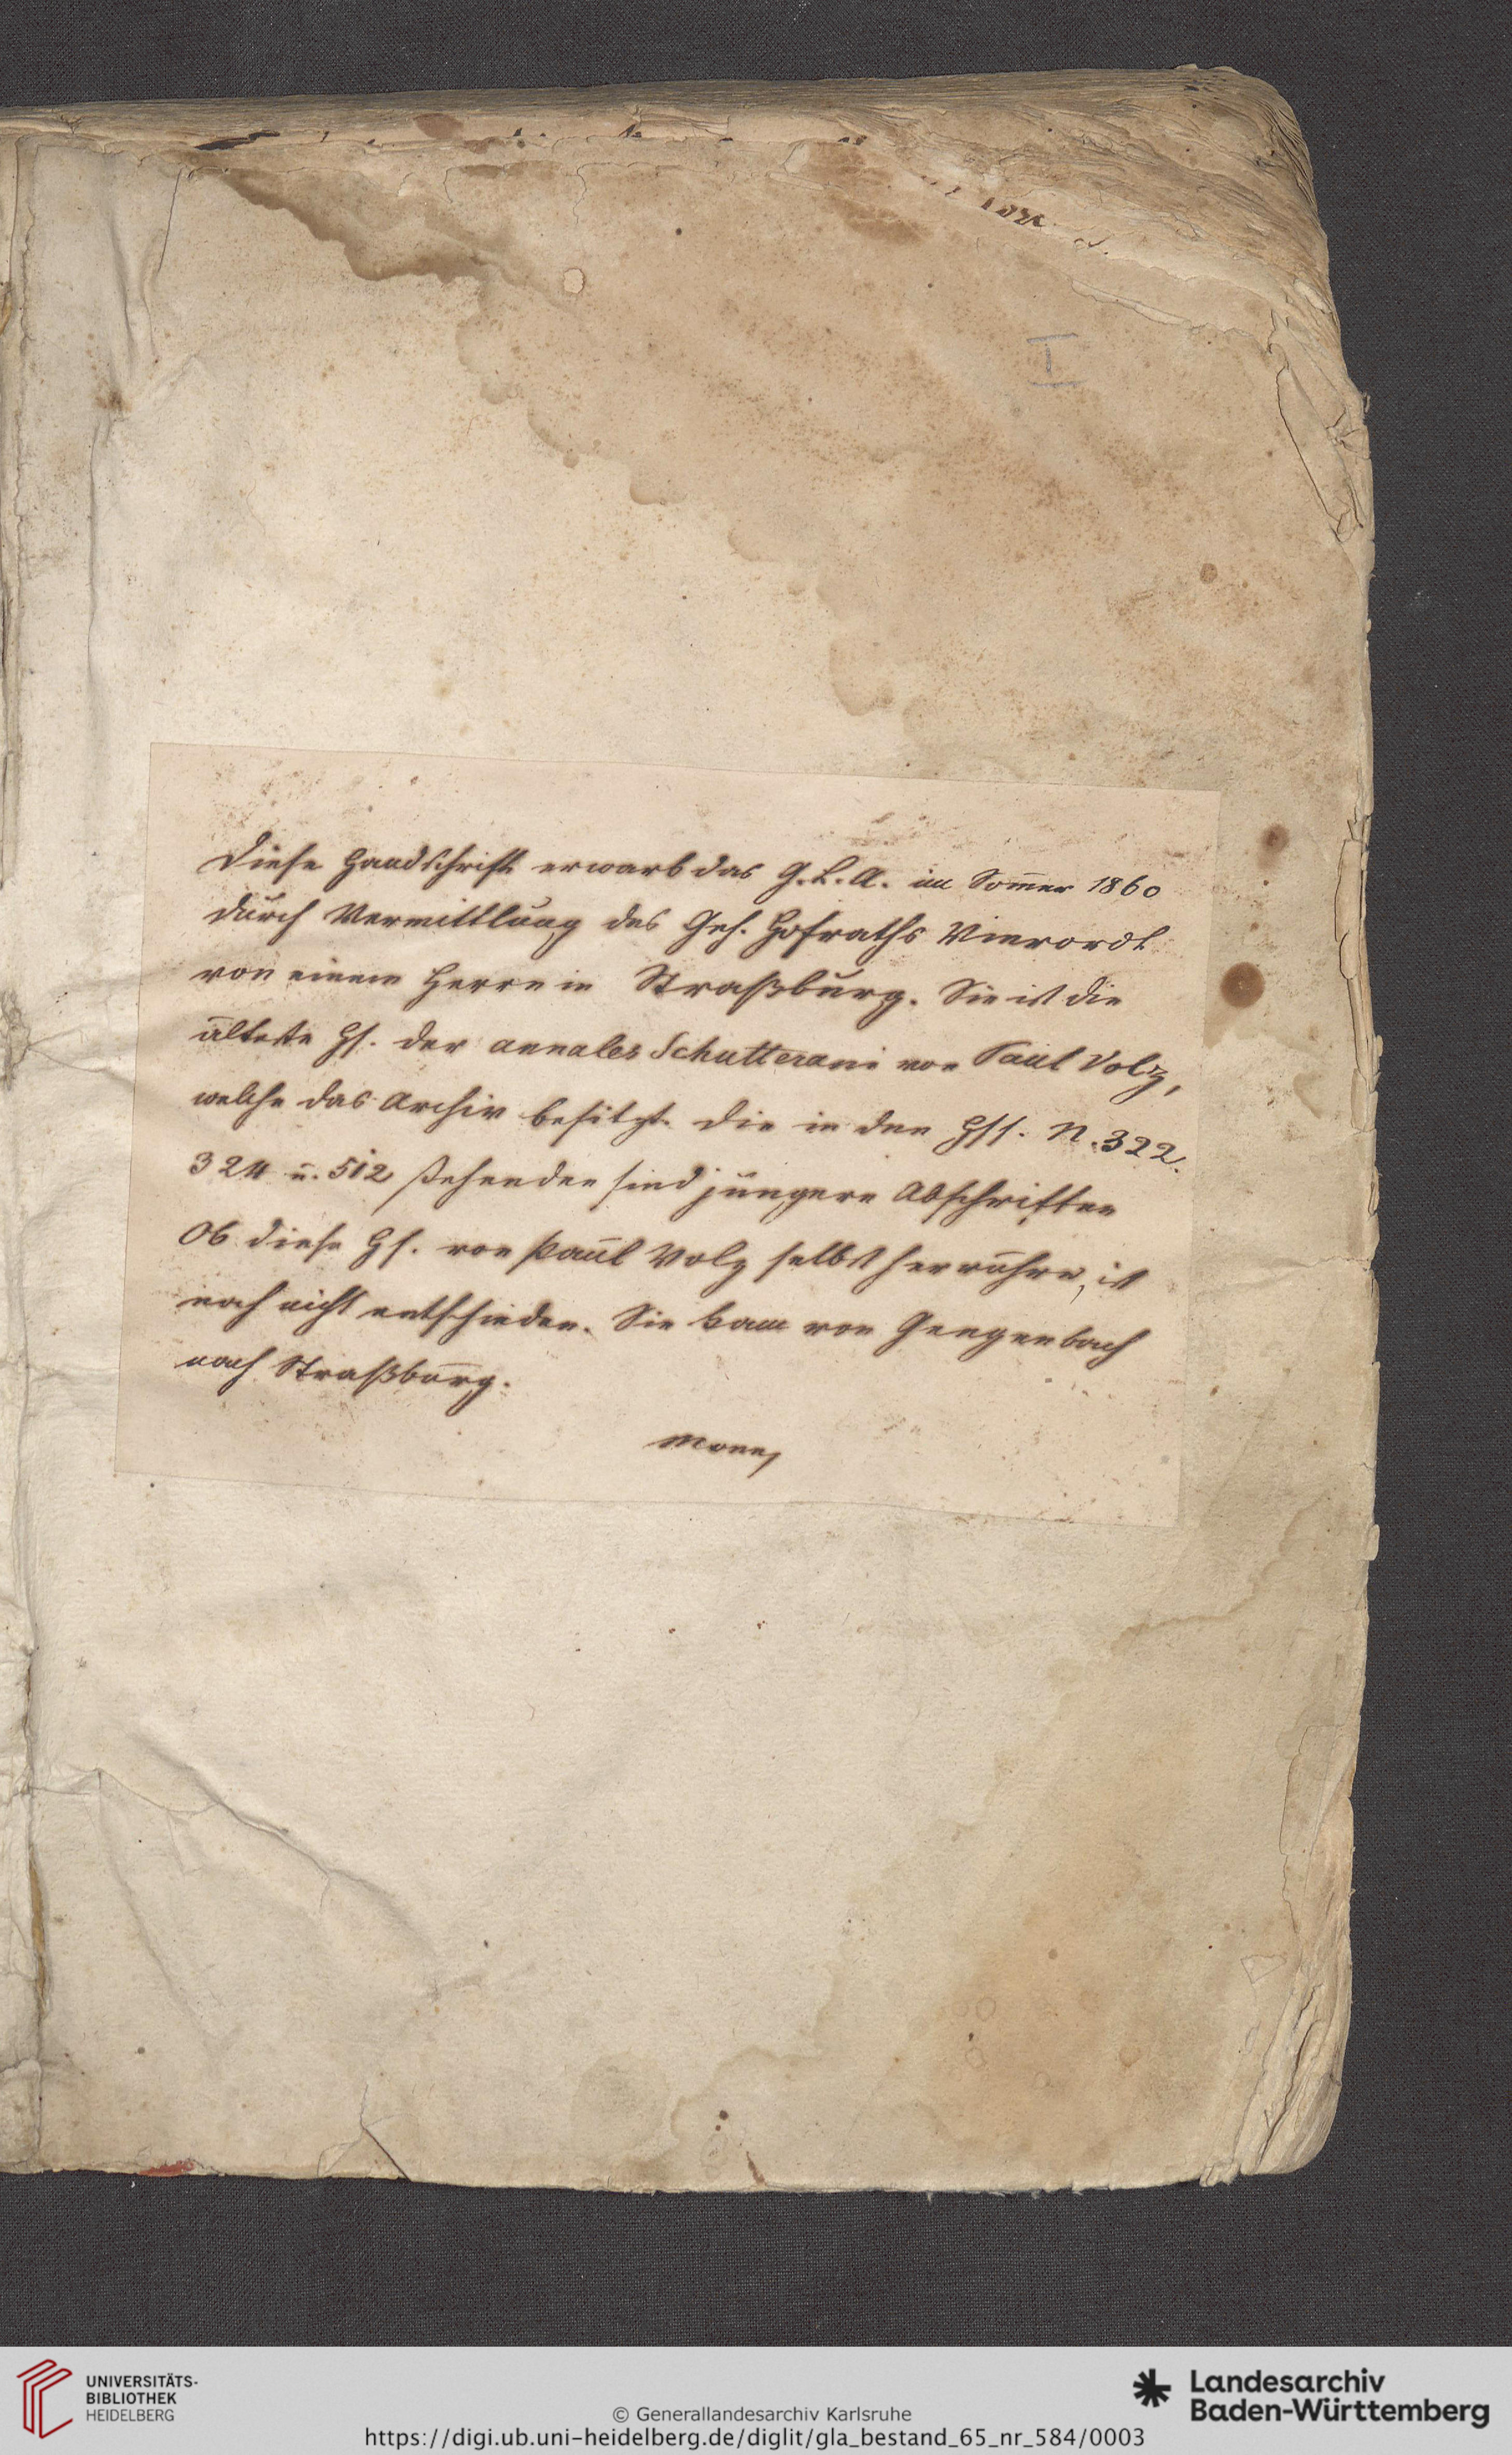 I
Diese Handschrift erwarb das G. L. A. im Som̄er 1860
durch Vermittlung des Geh. Hofraths Vierordt
von einem Herrn in Straßburg. Sie ist die
älteste Hs. der annales Schutterani von Paul Volz,
welche das Archiv besitzt. Die in den Hss. N. 322.
324 u. 512 stehenden sind jüngere Abschriften
Ob diese Hs. von Paul Volz selbst herrühre, ist
noch nicht entschieden. Sie kam von Gengenbach
nach Straßburg.
Mone
UNIVERSITÄTS-
BIBLIOTHEK
HEIDELBERG
© Generallandesarchiv Karlsruhe
https://digi.ub.uni-heidelberg.de/diglit/gla_bestand_65_nr_584/0003
Landesarchiv
Baden-Württemberg